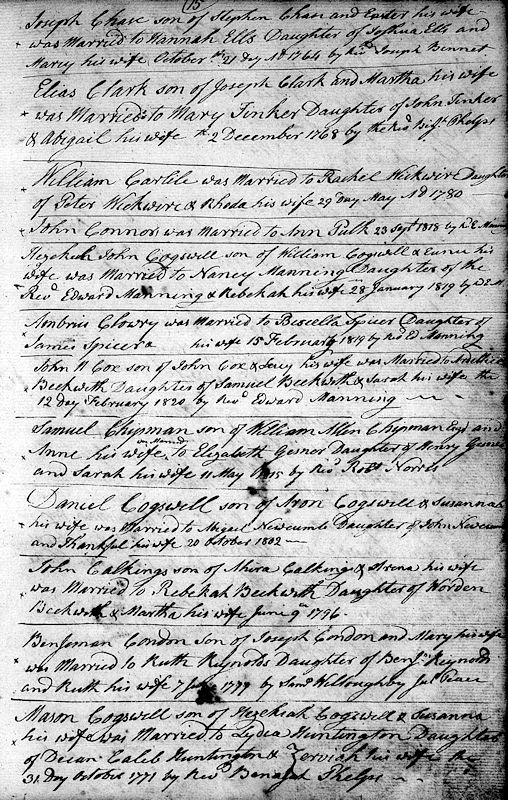 75
Joseph Chase son of Stephen Chase and Easter his wife
was Married to Hannah Ells Daughter of Joshua Ells and
Marcy his wife October 31 day AD 1764 by Revd Joseph Bennet
Elias Clark son of Joseph Clark and Martha his wife
was Married to Mary Tinker Daughter of John Tinker
& Abigail his wife 2 December 1768 by the Revd Phelps
William Carlile was Married to Rachel Wickwire Daughter
of Peter Wickwire & Rhoda his wife 29 day May AD 1780
John Connors was Married to Ann 23 Sept 1818 by Rd E Manning
Hezekiah John Cogswell son of William Cogswell & Eunice his
wife was Married to Nancy Manning Daughter of the
Revd Edward Manning & Rebekah his wife 28 January 1819 by Rd E M
Ambrus Clowry was Married to Spicer Daughter of
James Spicer & his wife 15 February 1819 by Rd Ed Manning
John W Cox son of John Cox & Lucy his wife was Married to
Beckwith Daughter of Samuel Beckwith & Sarah his wife the
12 day February 1820 by Revd Edward Manning
Samuel Chipman son of William Allen Chipman Esqr and
was Married
Anne his wife to Elizabeth Gesnor Daughter of Henry Gesnor
and Sarah his wife 11 May 1815 by Revd Robt Norris
Daniel Cogswell son of Aron Cogswell & Susannah
his wife was Married to Newcomb Daughter of John Newcomb
and Thankful his wife 20 October 1802
John Calkings son of Ahira Calkings & Irena his wife
was Married to Rebekah Beckwith Daughter of Horden
Beckwith & Martha his wife June 9th 1796.
Benjeman Condon son of Joseph Condon and Mary his wife
was Married to Ruth Reynolds Daughter of Benjn Reynolds
and Ruth his wife 7 June 1779 by Saml Willoughby Jus Peace
Mason Cogswell son of Hezekiah Cogswell & Susanna
his wife was Married to Lydia Huntington Daughter
of Decan Caleb Huntington & Zerviah his wife the
31 Day October 1771 by Revd Benajah Phelps